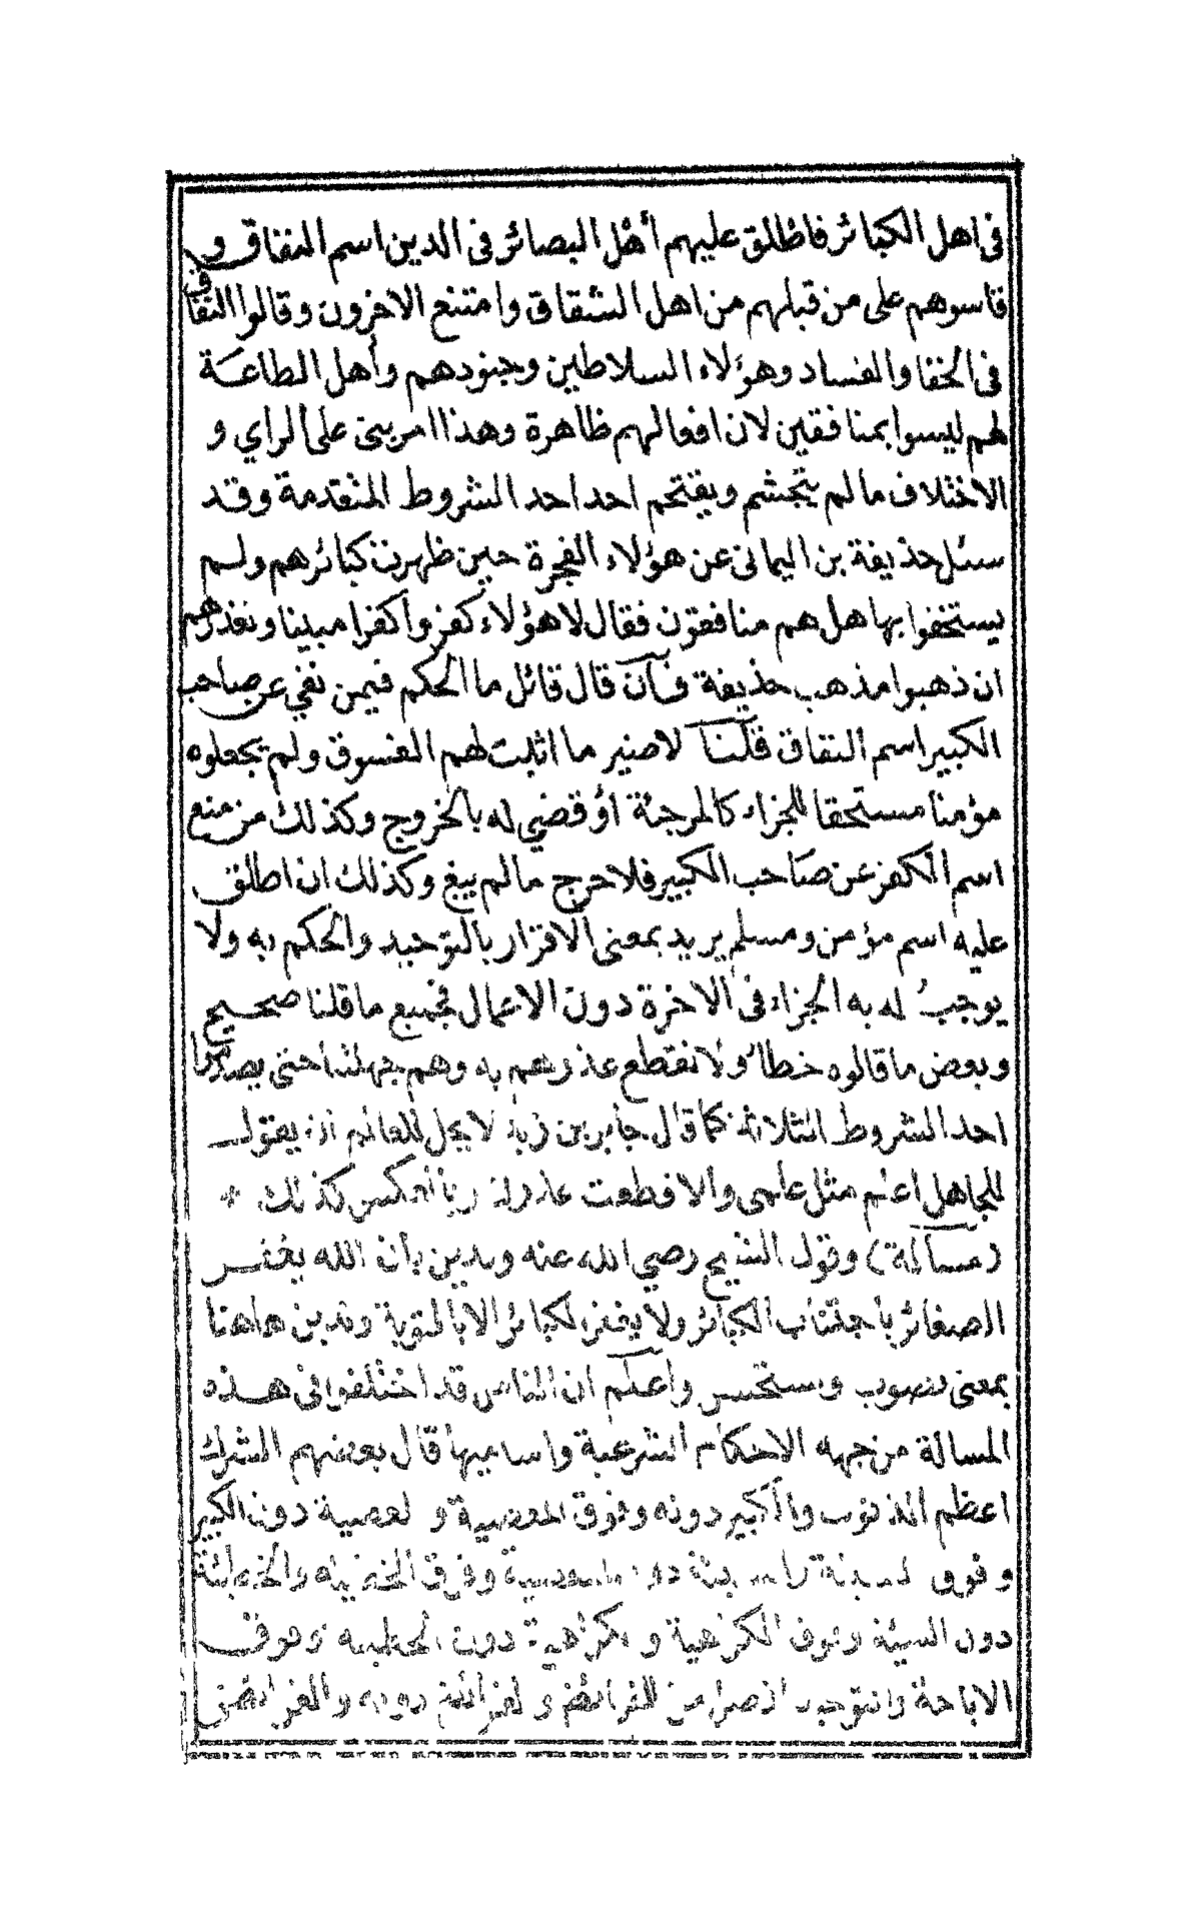 في اهل الكبائر فاطلق عليهم أهل البصائر في الدين اسم النفاق و
قاسوهم على من قبلهم من اهل الشقاق وامتنع الاخرون وقالوا النفاق
في الخفا والفساد وهؤلاء السلاطين وجنودهم وأهل الطاعة
لهم ليسوا بمنافقين لان افعالهم ظاهرة وهذا امر بني على الراي و
الاختلاف ما لم يتجشم ويقتحم احد احد الشروط المتقدمة وقد
سئل حذيفة بن اليماني عن هؤلاء الفجرة حين ظهرت كبائرهم ولم
يستخفوا بها هل هم منافقون فقال لا هؤلاء كفروا كفرا مبينا ونعذرهم
ان ذهبوا مذهب حذيفة فأن قال قائل ما الحكم فيمن نفي عن صاحب
الكبير اسم النفاق قلنا لا ضير ما اثبت لهم الفسوق ولم يجعلوه
مؤمنا مستحقا للجزاء كالمرجئة أو قضي له بالخروج وكذلك من منع
اسم الكفر عن صاحب الكبير فلا حرج ما لم يبغ وكذلك ان اطلق
عليه اسم مؤمن ومسلم يريد بمعنى الاقرار بالتوحيد والحكم به ولا
يوجب له به الجزاء في الاخرة دون الاعمال فجميع ما قلنا صحيح
وبعض ما قالوه خطأ ولا نقطع عذرهم به وهم جهلتنا حتى يصدروا
احد الشروط الثلاثة كما قال جابر بن زيد لا يحل للعالم ان يقول
للجاهل اعلم مثل علمي والا قطعت عذرك كذلك *
(مسألة) وقول الشيخ رضي الله عنه وندين بأن الله يغفر
الصغائر باجتناب الكبائر ولا يغفر الكبائر الا بالتوبة وندين هاهنا
بمعنى نصوب ونستحسن واعلم ان الناس قد اختلفوا في هذه
المسالة من جهه الاحكام الشرعية واساميها قال بعضهم الشرك
اعظم الذنوب والكبير دونه وفوق المعصية و المعصية دون الكبير
وفوق
دون السيئة وفوق الكراهية و الكراهية دون الخطيئة وفوق
الاباحة والتوحيد من الفرائض و دونه والفرائض